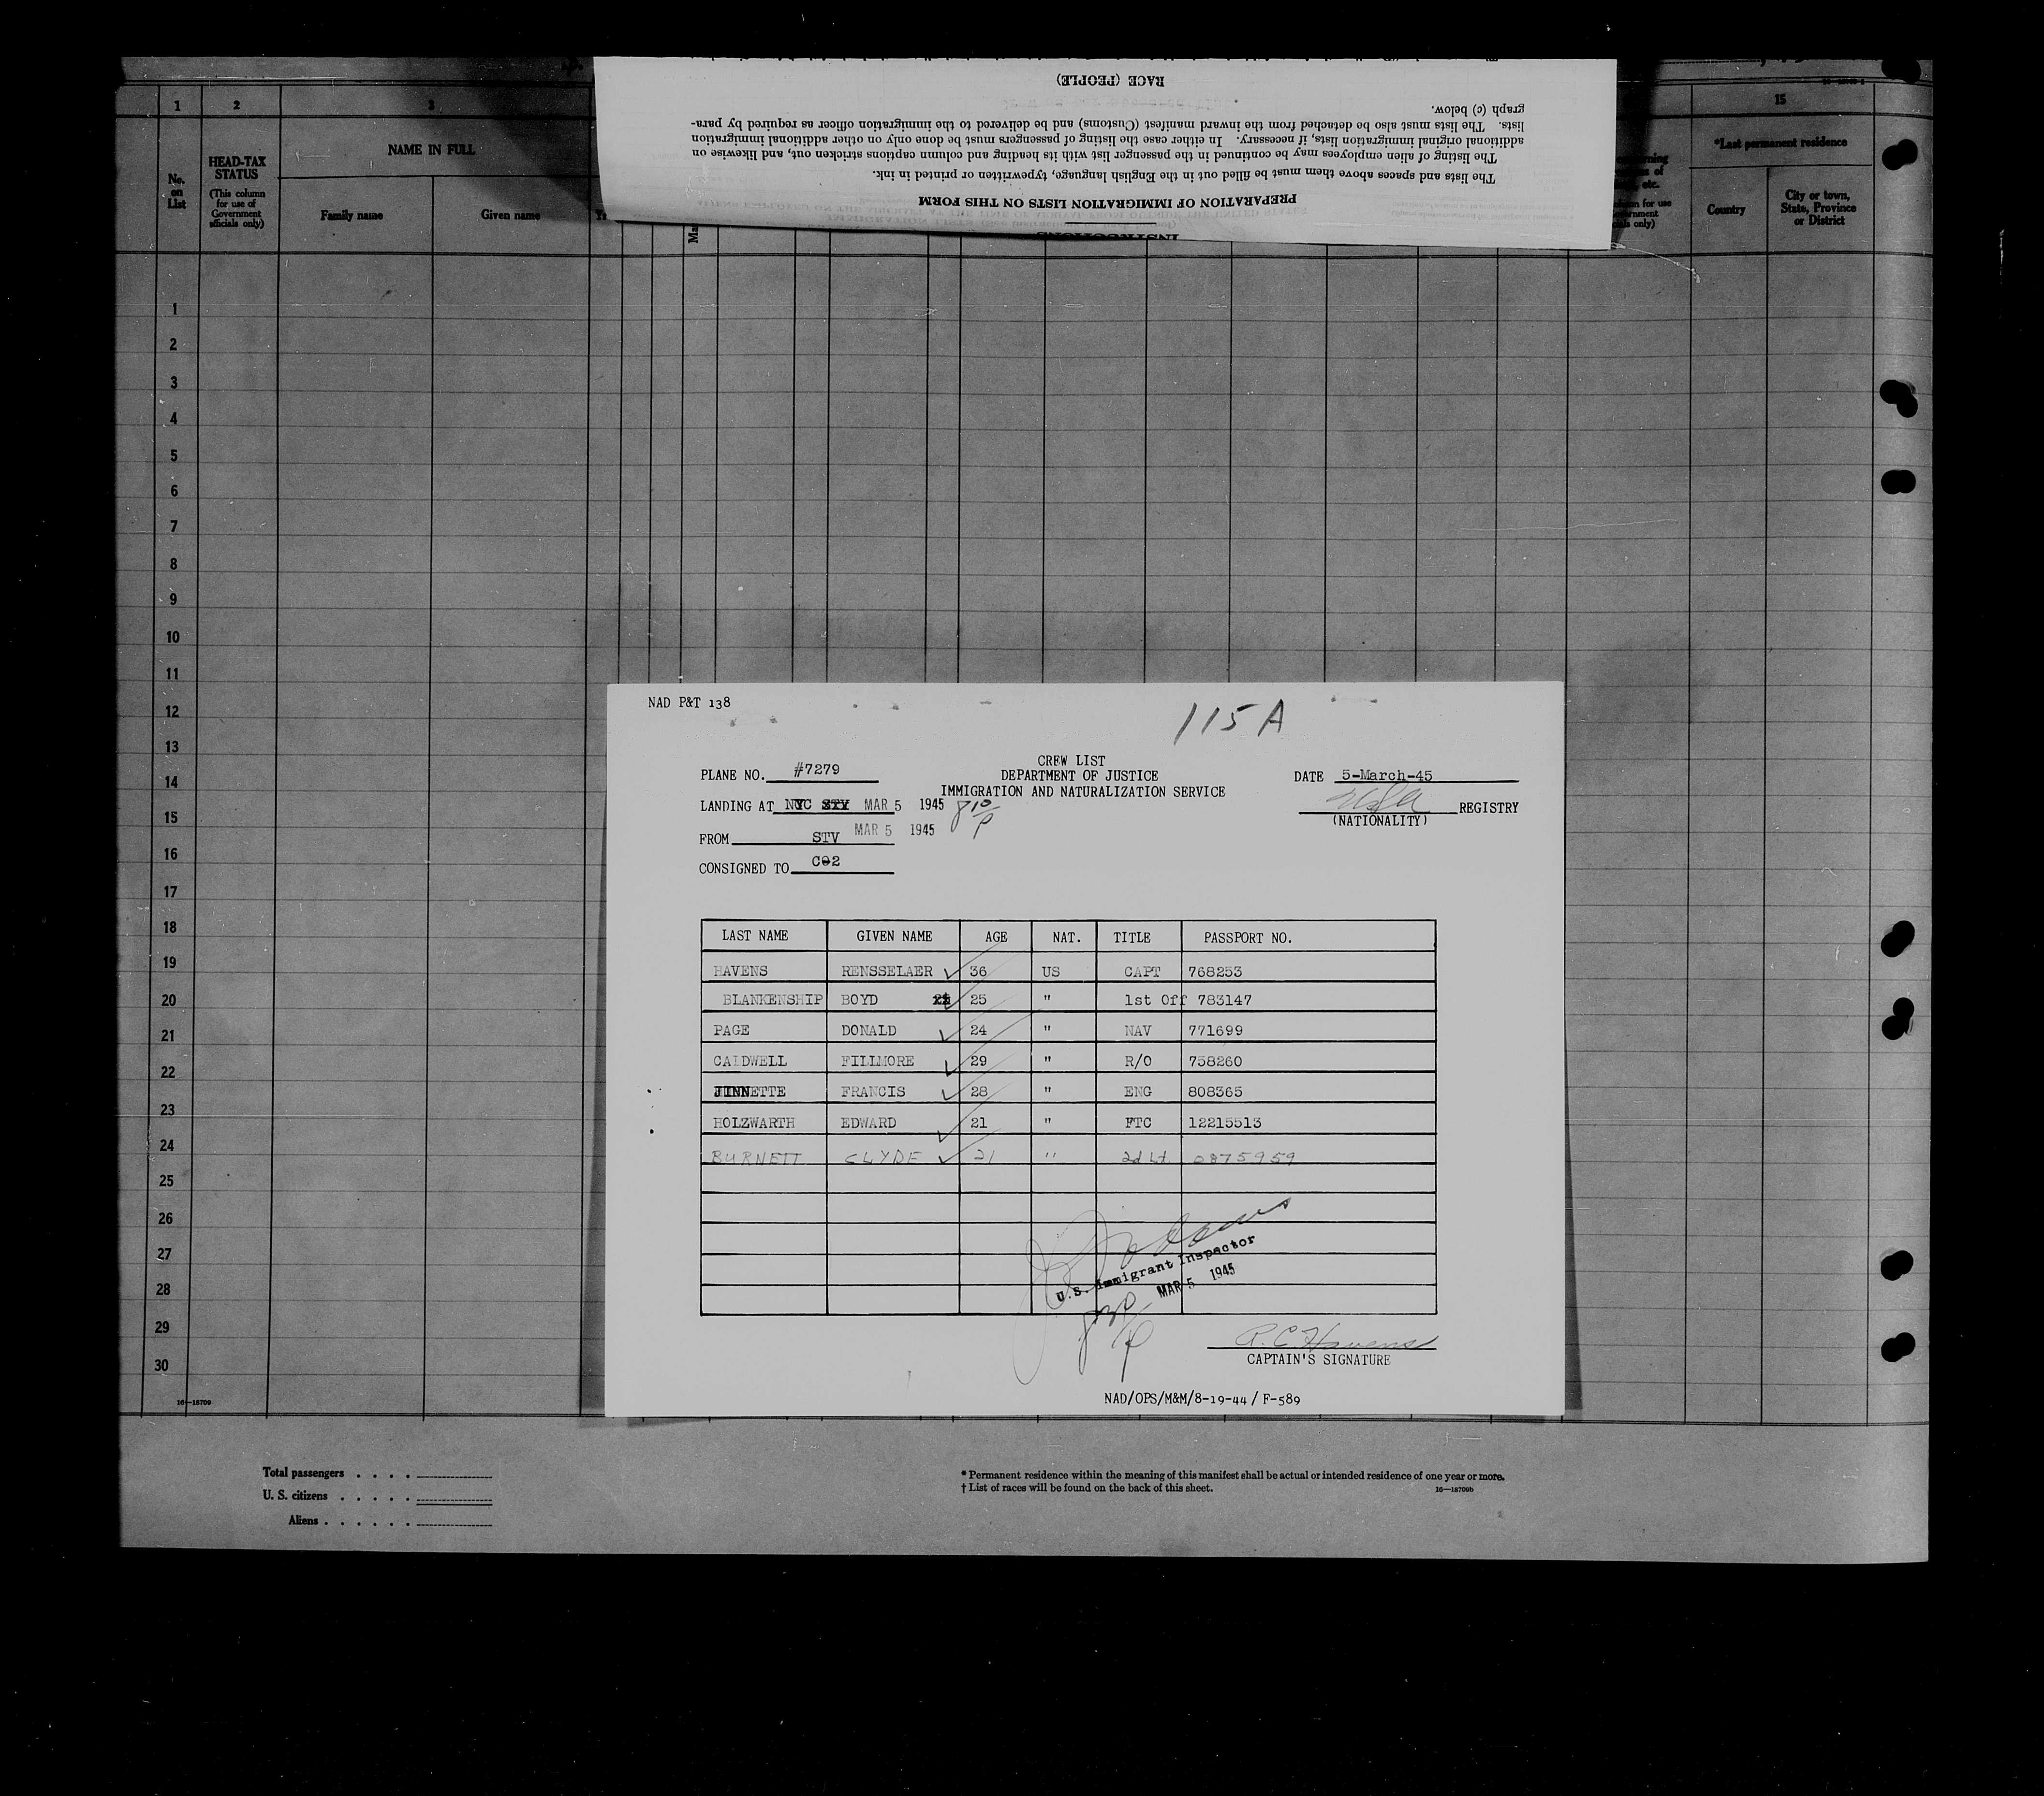 1 2 3 15
HEAD-TAX STATUS
(This column for use of Government officials only)
No. on List
NAME IN FULL
Family name Given name
*Last permanent residence
Country
City or town, State, Province or District
INSTRUCTIONS
PREPARATION OF IMMIGRATION LISTS ON THIS FORM
The lists and spaces above them must be filled out in the English language, typewritten or printed in ink.
The listing of alien employees may be continued in the passenger list with its heading and column captions stricken out, and likewise on
additional original immigration lists, if necessary. In either case the listing of passengers must be done only on other additional immigration
lists. The lists must also be detached from the inward manifest (Customs) and be delivered to the immigration officer as required by para-
graph (c) below.
RACE (PEOPLE)
1
2
3
4
5
6
7
8
9
10
11
12
13
14
15
16
17
18
19
20
21
22
23
24
25
26
27
28
29
30
16—18709
NAD P&T 138
115 A
CREW LIST
DEPARTMENT OF JUSTICE
IMMIGRATION AND NATURALIZATION SERVICE
PLANE NO. #7279
DATE 5-March-45
LANDING AT NYC STV MAR 5 1945 8 10/P
REGISTRY
(NATIONALITY)
FROM STV MAR 5 1945
CONSIGNED TO C02
LAST NAME GIVEN NAME AGE NAT. TITLE PASSPORT NO.
HAVENS RENSSELAER 36 US CAPT 768253
BLANKENSHIP BOYD 25 " 1st Off 783147
PAGE DONALD 24 " NAV 771699
CALDWELL FILLMORE 29 " R/O 758260
JINNETTE FRANCIS 28 " ENG 808365
HOLZWARTH EDWARD 21 " FTC 12215513
BURNETT CLYDE 21 " 2d Lt. 0875959
U.S. Immigrant Inspector
MAR 5 1945
R.C. Havens
CAPTAIN'S SIGNATURE
NAD/OPS/M&M/8-19-44/ F-589
Total passengers
U. S. citizens
Aliens
* Permanent residence within the meaning of this manifest shall be actual or intended residence of one year or more.
† List of races will be found on the back of this sheet.
16—18709b